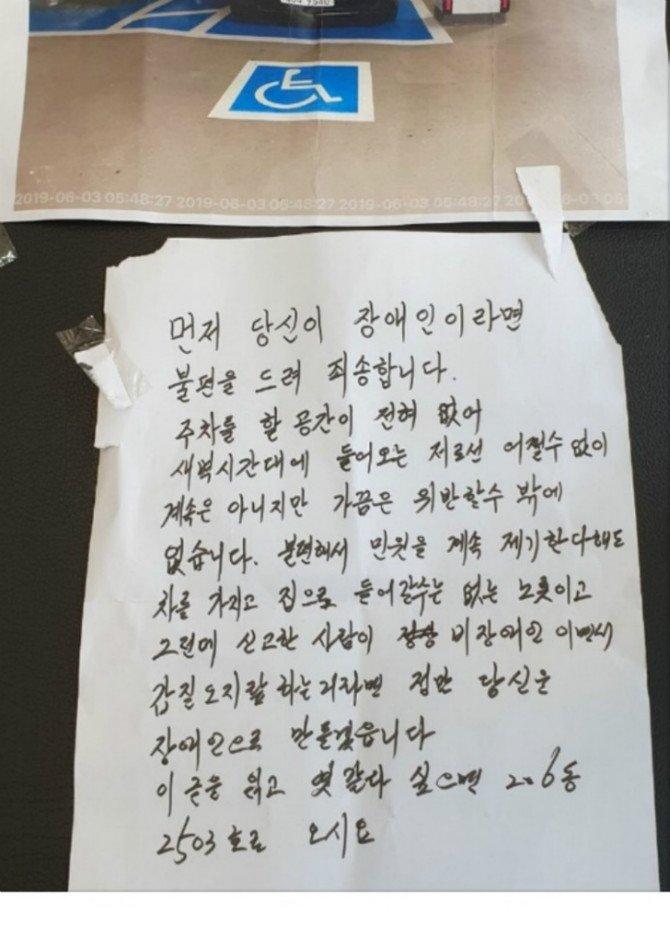 2019-06-03 05:48:27 2019-06-03 05:48:27 2019-06-03 05:48:27 20
먼저 당신이 장애인이라면
불편을 드려 죄송합니다.
주차를 할 공간이 전혀 없어
새벽시간대에 들어오는 저로선 어쩔수없이
계속은 아니지만 가끔은 위반할수 밖에
없습니다. 불편해서 민원을 계속 제기한다해도
차를 가지고 집으로 들어갈수는 없는 노릇이고
그런데 신고한 사람이 비장애인 이면서
갑질 오지랖 하는거라면 당신은
장애인으로 만들겠습니다
이 글을 읽고 엿같다 싶으면 206동
2503호로 오시요